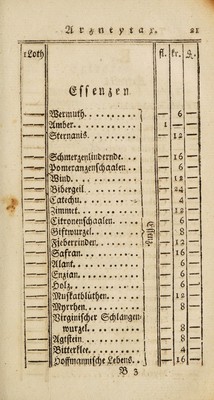 Arzneytax. 21
1Loth fl. kr. ₰.
Essenzen
Wermuth. — 6 —
Amber. 1 — —
Sternanis. — 12 —
Schmerzenlindernde. — 16 —
Pomeranzenschaalen — 6 —
Wind. — 12 —
Bibergeil. — 24 —
Catechu. — 4 —
Zimmet. — 12 —
Citronenschaalen. — 6 —
Giftwurzel. — 8 —
Fieberrinden. — 12 —
Safran. — 16 —
Alant. — 6 —
Enzian. — 6 —
Holz. — 6 —
Muskatblüthen. — 12 —
Myrrhen. — 8 —
Virginischer Schlangen=
wurzel. — 8 —
Agtstein — 8 —
Bitterklee. — 4 —
Hoffmannische Lebens. — 16 —
B 3